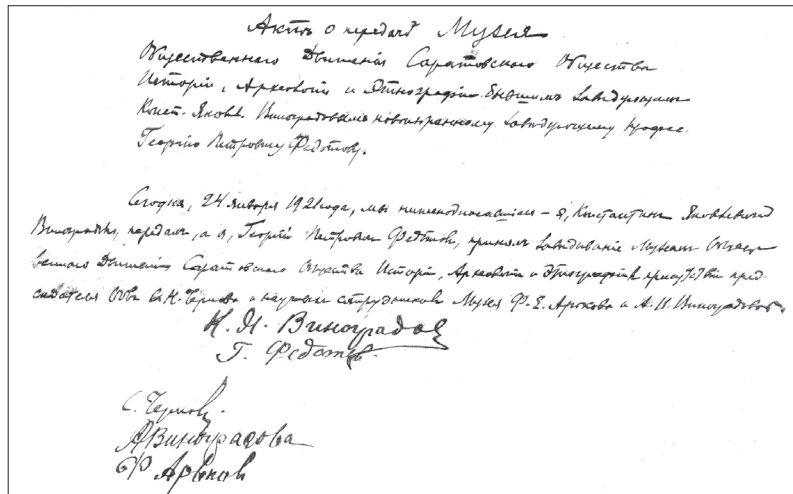 Актъ о передачѣ Музея
Общественнаго Движенія Саратовскаго Общества
Исторіи, Археологіи и Этнографіи бывшимъ Завѣдующимъ
Конст. Яковл. Виноградовымъ новоизбранному Завѣдующему профес.
Георгію Петровичу Федотову.
Сегодня, 24 января 1921 года, мы нижеподписавшіеся – я, Константинъ Яковлевичъ
Виноградовъ, передалъ, а я, Георгій Петровичъ Федотовъ, принялъ завѣдываніе Музеемъ Общест
веннаго Движенія Саратовскаго Общества Исторіи, Археологіи и Этнографіи въ присутствіи пред-
сѣдателя О-ва С. Н. Чернова и научныхъ сотрудниковъ Музея Ф. Е. Арюкова и А. И. Виноградовой
К. Я. Виноградов
Г. Федотов.
С. Чернов.
А Виноградова